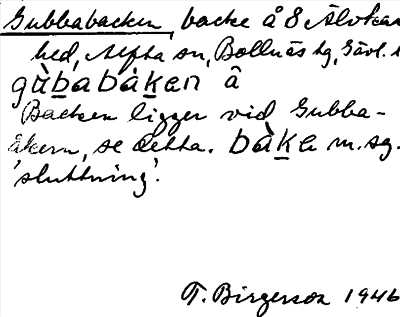 Gubbabacken, backe å S Älvkar
hed, Alfta sn, Bollnäs tg, Gävl. l
gùbabàken â
Backen ligger vid Gubba-
åkern, se detta. bàka m. sg.
'sluttning'.
T. Birgerson 1946